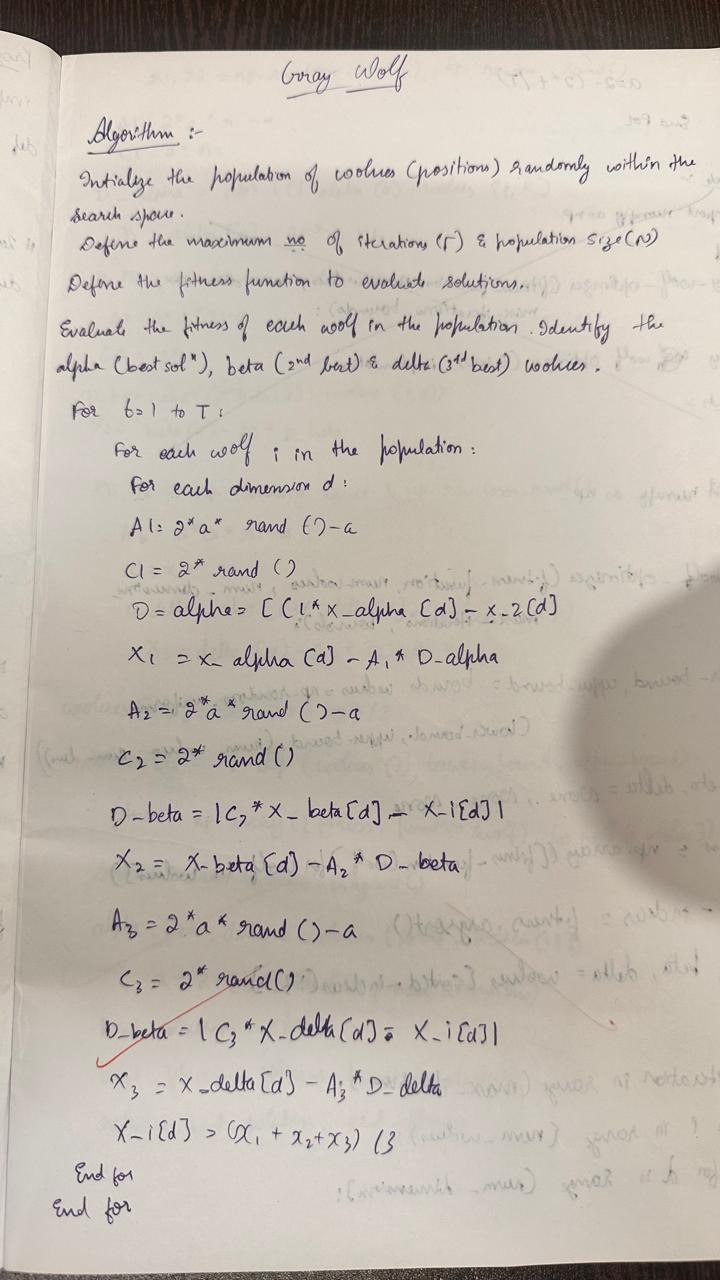 Gray Wolf
Algorithm :-
Intialize the population of woolves (positions) randomly within the
search space.
Define the maximum no of iterations (T) & population size (N)
Define the fitness function to evaluate solutions.
Evaluate the fitness of each woolf in the population. Identify the
alpha (best solⁿ), beta (2nd best) & delta (3rd best) woolves.
For t=1 to T :
For each woolf i in the population :
For each dimension d :
A1= 2*a* rand ()-a
C1 = 2* rand ()
D=alpha= [C1*X_alpha [d] - x_2[d]
X1 = x_ alpha [d] - A1* D-alpha
A2 = 2*a*rand ()-a
C2 = 2* rand ()
D-beta = |C2*X_beta[d] - X-i[d]|
X2 = X-beta [d] - A2* D-beta
A3 = 2*a* rand ()-a
C3 = 2* rand()
D_beta = |C3*X_delta[d] = X_i[d]|
X3 = X_delta[d] - A3* D_delta
X-i[d] = (x1 + x2+x3) (3
End for
End for